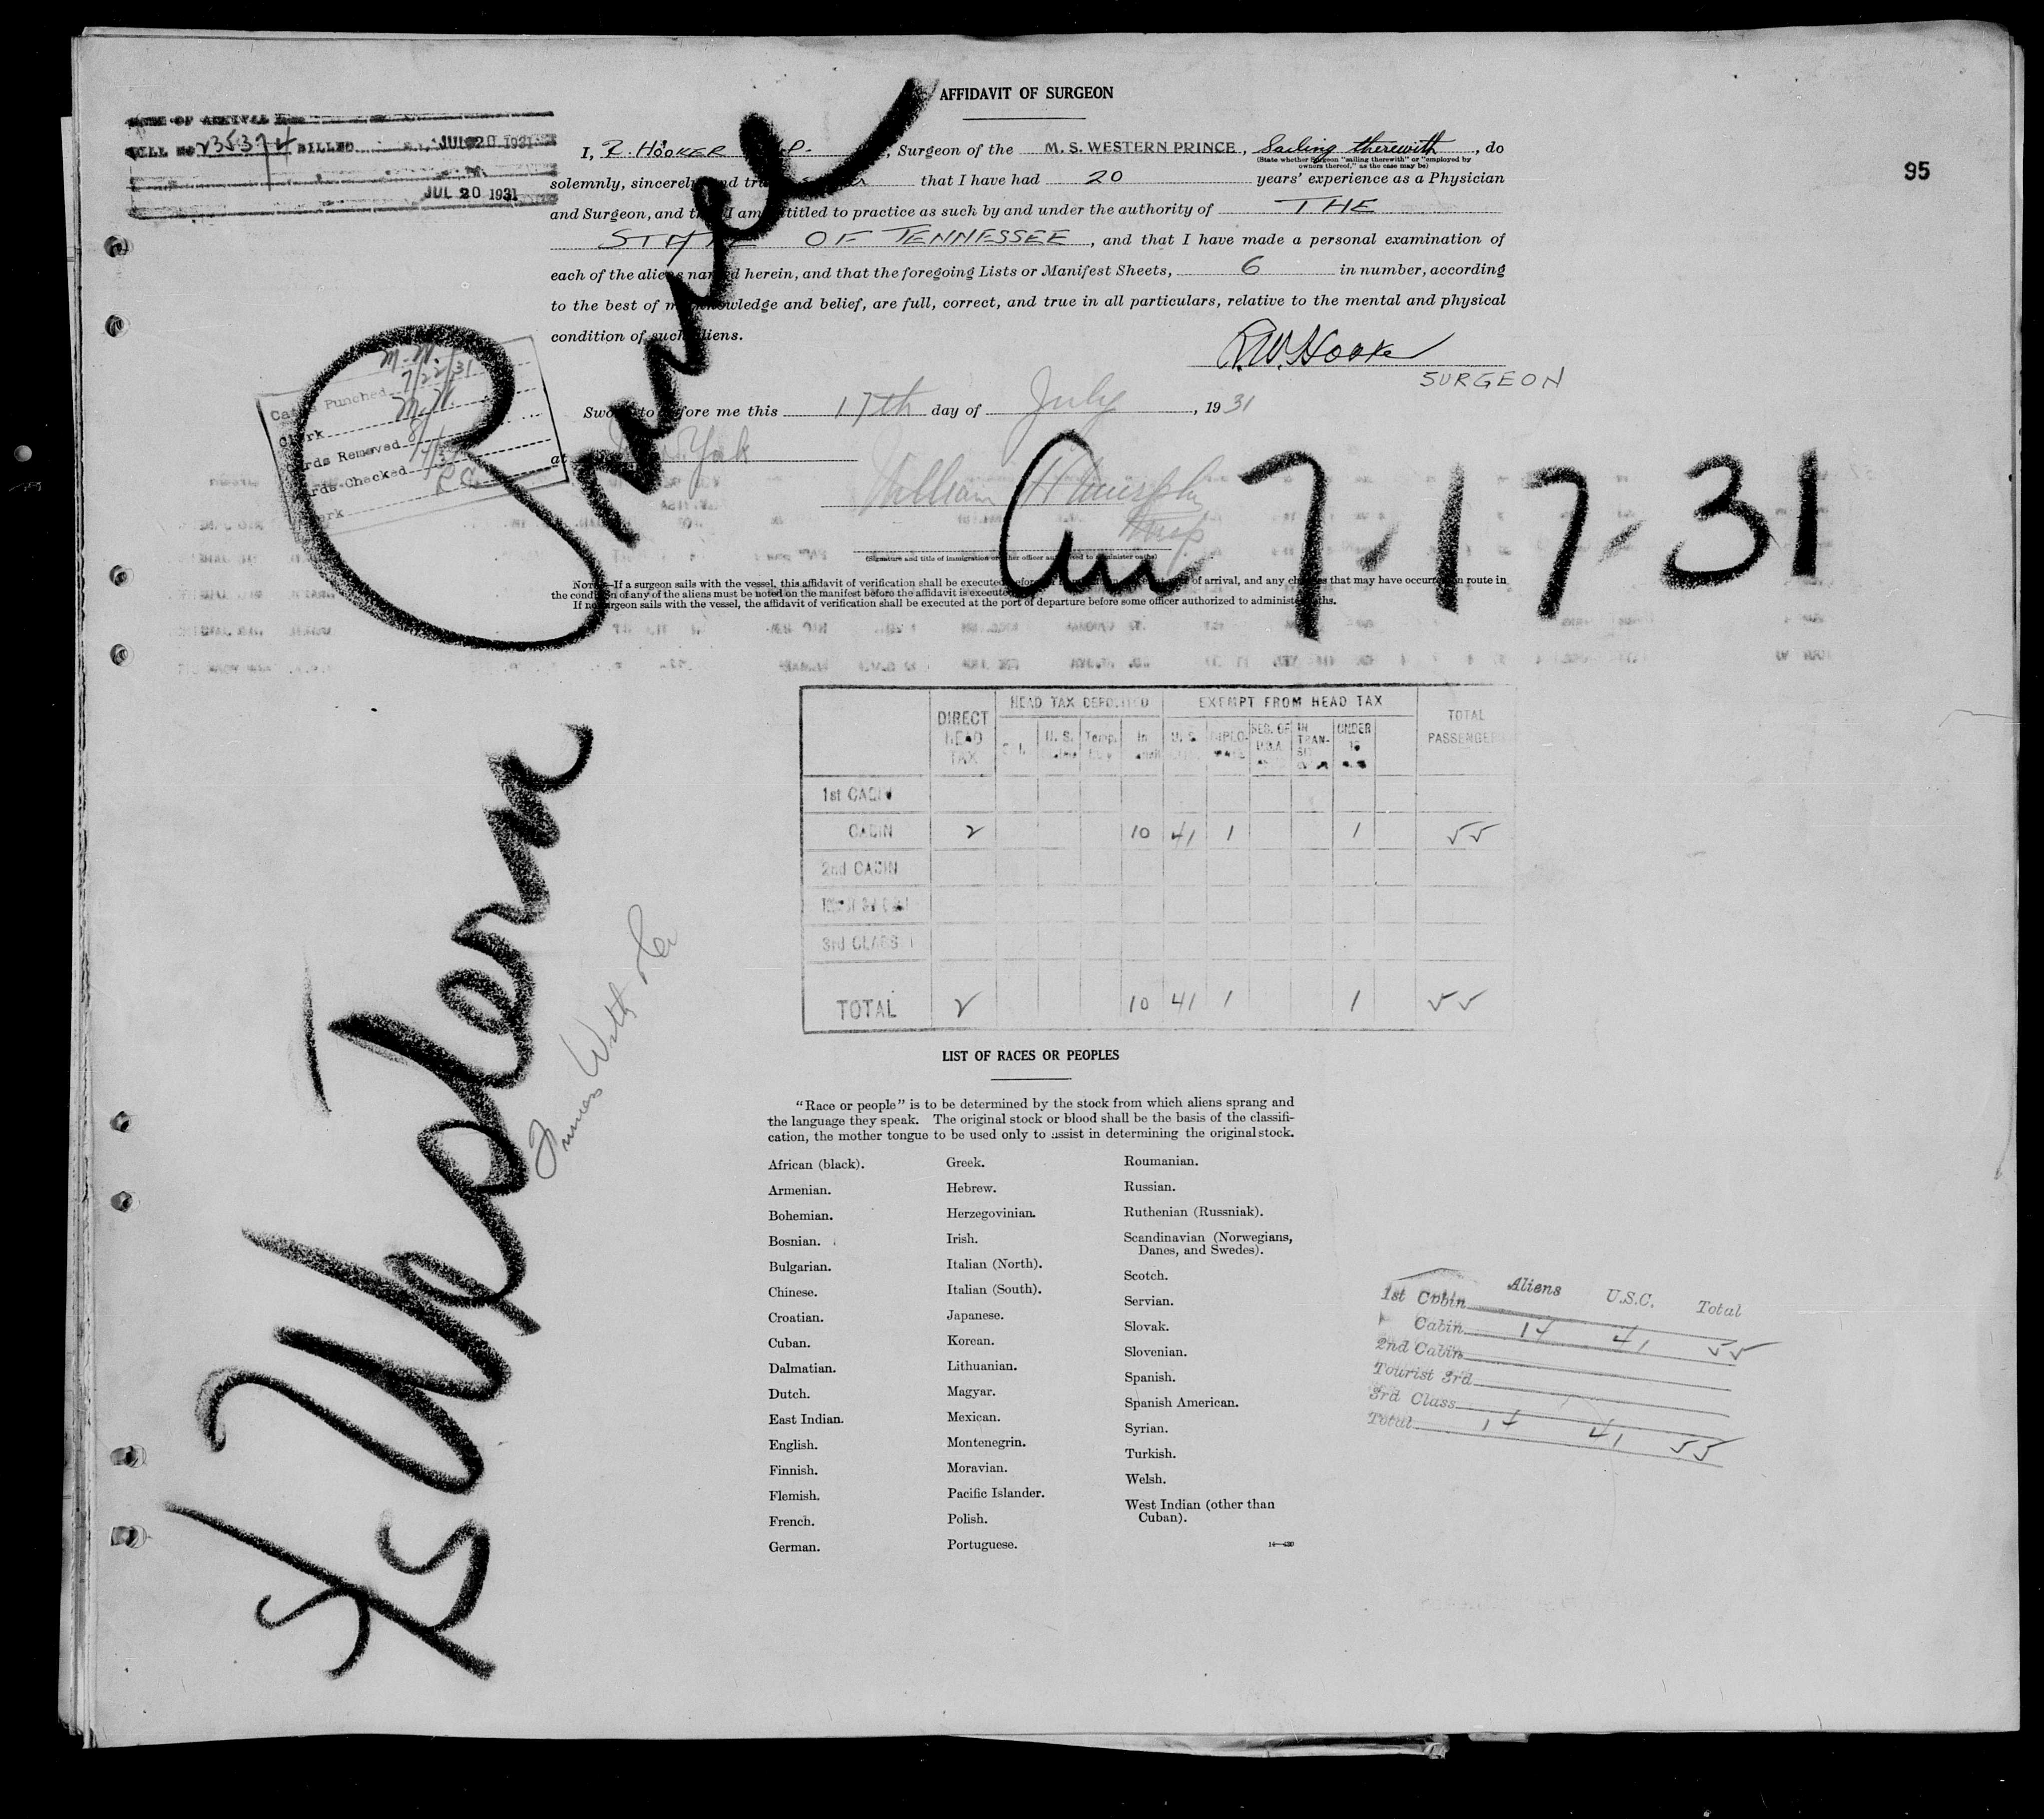 AFFIDAVIT OF SURGEON
BILL No 23534 BILLED JUL 20 1931
JUL 20 1931
95
I, HOOKER, Surgeon of the M. S. WESTERN PRINCE, Sailing therewith, do
(State whether Surgeon "sailing therewith" or "employed by
owners thereof," as the case may be)
solemnly, sincerely and that I have had 20 years' experience as a Physician
and Surgeon, and I am entitled to practice as such by and under the authority of THE
STATE OF TENNESSEE, and that I have made a personal examination of
each of the aliens named herein, and that the foregoing Lists or Manifest Sheets, 6 in number, according
to the best of my knowledge and belief, are full, correct, and true in all particulars, relative to the mental and physical
condition of such aliens.
R.W. Hooker
SURGEON
Sworn to before me this 17th day of July, 1931
at York
William
(Signature and title of immigration or other officer authorized to administer oaths)
Cards Punched 7/22/31
Clerk M.N.
Cards Removed
Cards Checked
Clerk
NOTE.—If a surgeon sails with the vessel, this affidavit of verification shall be executed before of arrival, and any changes that may have occurred on route in
the condition of any of the aliens must be noted on the manifest before the affidavit is executed.
If no surgeon sails with the vessel, the affidavit of verification shall be executed at the port of departure before some officer authorized to administer oaths.
S/S Western Prince
Arr 7-17-31
Furness Withy
DIRECT HEAD TAX HEAD TAX DEPOSITED EXEMPT FROM HEAD TAX TOTAL PASSENGERS
U. S. Temp. In U. S. DIPLO- RES. OF U.S.A. IN TRAN- UNDER 16
1st CABIN
CABIN 2 10 41 1 1 55
2nd CABIN
3rd CLASS
TOTAL 2 10 41 1 1 55
LIST OF RACES OR PEOPLES
"Race or people" is to be determined by the stock from which aliens sprang and
the language they speak. The original stock or blood shall be the basis of the classifi-
cation, the mother tongue to be used only to assist in determining the original stock.
African (black).
Armenian.
Bohemian.
Bosnian.
Bulgarian.
Chinese.
Croatian.
Cuban.
Dalmatian.
Dutch.
East Indian.
English.
Finnish.
Flemish.
French.
German.
Greek.
Hebrew.
Herzegovinian.
Irish.
Italian (North).
Italian (South).
Japanese.
Korean.
Lithuanian.
Magyar.
Mexican.
Montenegrin.
Moravian.
Pacific Islander.
Polish.
Portuguese.
Roumanian.
Russian.
Ruthenian (Russniak).
Scandinavian (Norwegians,
Danes, and Swedes).
Scotch.
Servian.
Slovak.
Slovenian.
Spanish.
Spanish American.
Syrian.
Turkish.
Welsh.
West Indian (other than
Cuban).
Aliens U.S.C. Total
1st Cabin
Cabin 14 41 55
2nd Cabin
Tourist 3rd
3rd Class
Total 14 41 55